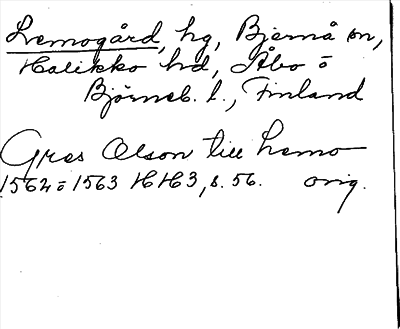 Lemogård, hg, Bjernå sn,
Halikko hd, Åbo o
Björneb. l., Finland
Gres Olson till Lemo
1562 o 1563 HH3, s. 56. orig.